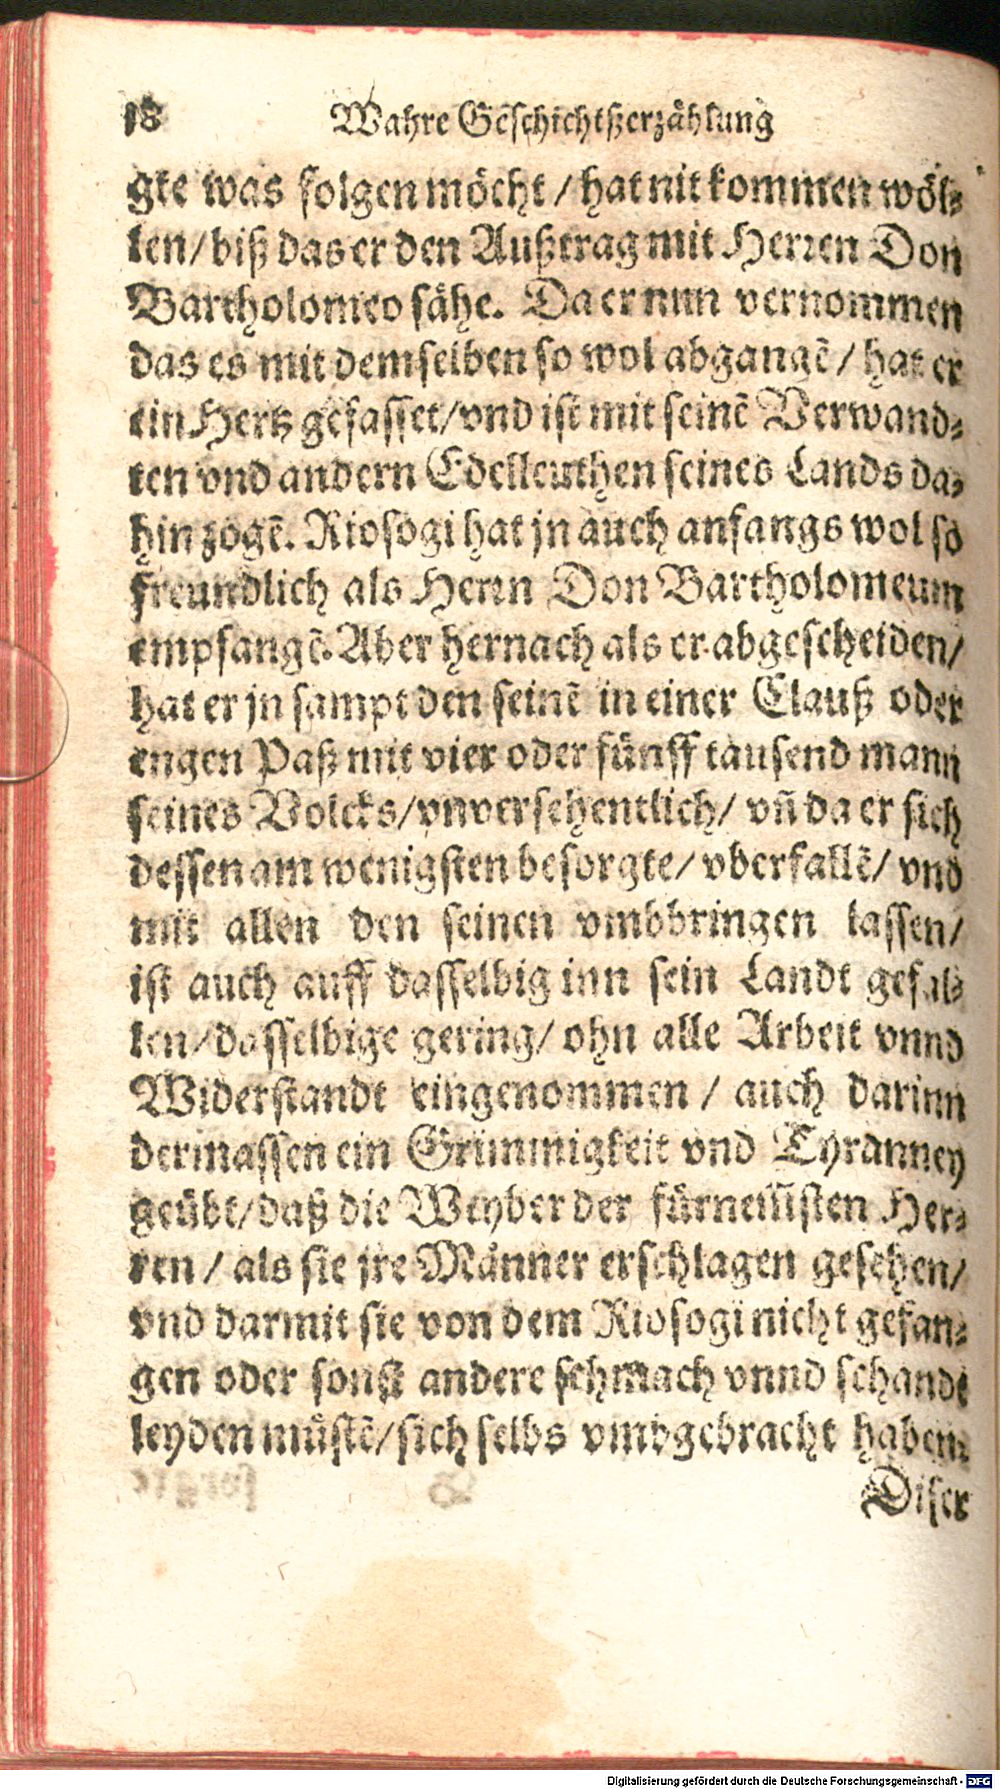 18 Wahre Geschichtßerzählung
gte was folgen möcht / hat nit kommen wöl-
len / biß das er den Außtrag mit Herren Don
Bartholomeo sähe. Da er nun vernommen
das es mit demselben so wol abgangē / hat er
ein Hertz gefasset / vnd ist mit seinē Verwand-
ten vnd andern Edelleuthen seines Lands da-
hin zogē. Riosogi hat jn auch anfangs wol so
freundlich als Herrn Don Bartholomeum
empfangē. Aber hernach als er abgescheiden /
hat er jn sampt den seinē in einer Clauß oder
engen Paß mit vier oder fünff tausend mann
seines Volcks / vnversehentlich / vñ da er sich
dessen am wenigsten besorgte / vberfallē / vnd
mit allen den seinen vmbbringen lassen /
ist auch auff dasselbig inn sein Landt gefal-
len / dasselbige gering / ohn alle Arbeit vnnd
Widerstandt eingenommen / auch darinn
dermassen ein Grimmigkeit vnd Tyranney
geübt / daß die Weyber der fürnemsten Her-
ren / als sie jre Männer erschlagen gesehen /
vnd darmit sie von dem Riosogi nicht gefan-
gen oder sonst andere schmach vnnd schande
leyden müstē / sich selbs vmbgebracht haben.
Diser
Digitalisierung gefördert durch die Deutsche Forschungsgemeinschaft - DFG